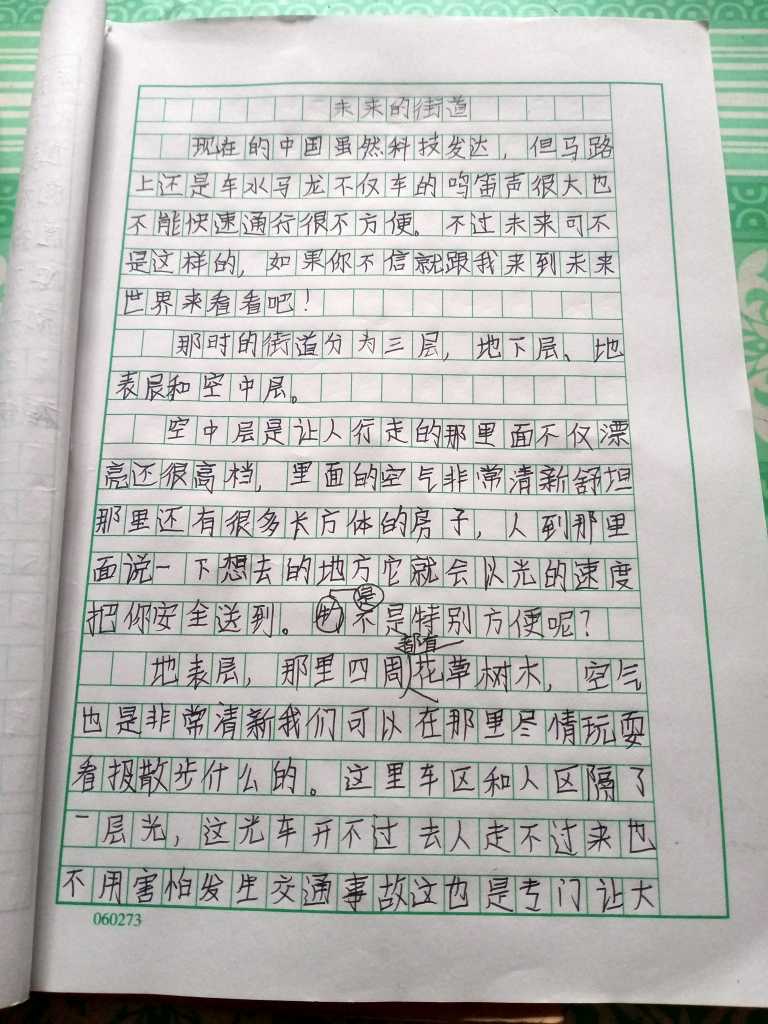 未来的街道
现在的中国虽然科技发达，但马路
上还是车水马龙不仅车的鸣笛声很大也
不能快速通行很不方便。不过未来可不
是这样的，如果你不信就跟我来到未来
世界来看看吧！
那时的街道分为三层，地下层、地
表层和空中层。
空中层是让人行走的那里面不仅漂
亮还很高档，里面的空气非常清新舒坦
那里还有很多长方体的房子，人到那里
面说一下想去的地方它就会以光的速度
是
把你安全送到。不是特别方便呢？
都有
地表层，那里四周花草树木，空气
也是非常清新我们可以在那里尽情玩耍
看报散步什么的。这里车区和人区隔了
一层光，这光车开不过去人走不过来也
不用害怕发生交通事故这也是专门让大
060273